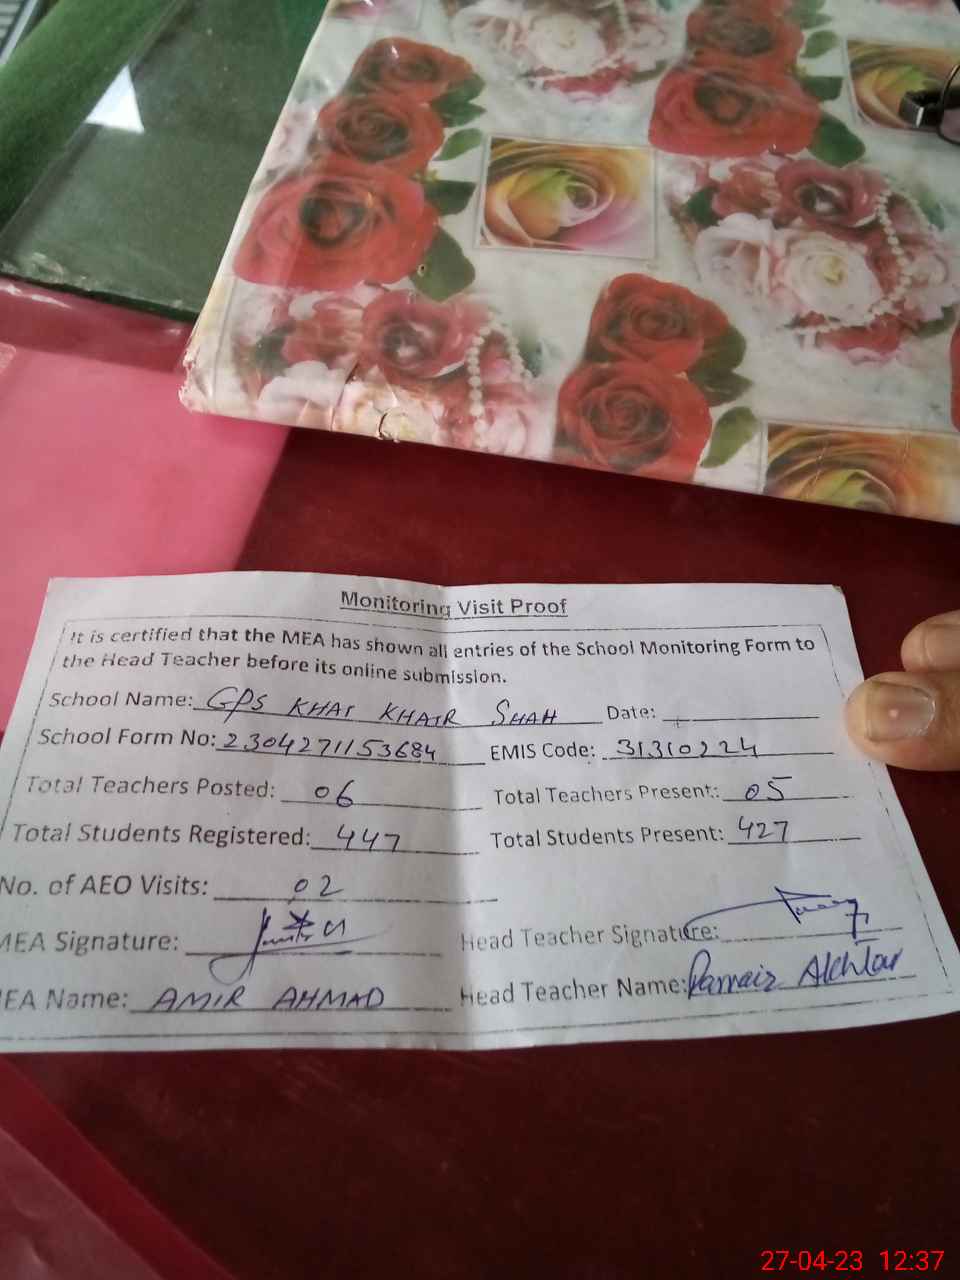 Monitoring Visit Proof
It is certified that the MEA has shown all entries of the School Monitoring Form to
the Head Teacher before its online submission.
School Name: GPS KHAI KHAIR SHAH Date:
School Form No: 2304271153684 EMIS Code: 31310224
Total Teachers Posted: 06 Total Teachers Present: 05
Total Students Registered: 447 Total Students Present: 427
No. of AEO Visits: 02
MEA Signature: Head Teacher Signature:
MEA Name: AMIR AHMAD Head Teacher Name: Parvaiz Akhtar
27-04-23 12:37